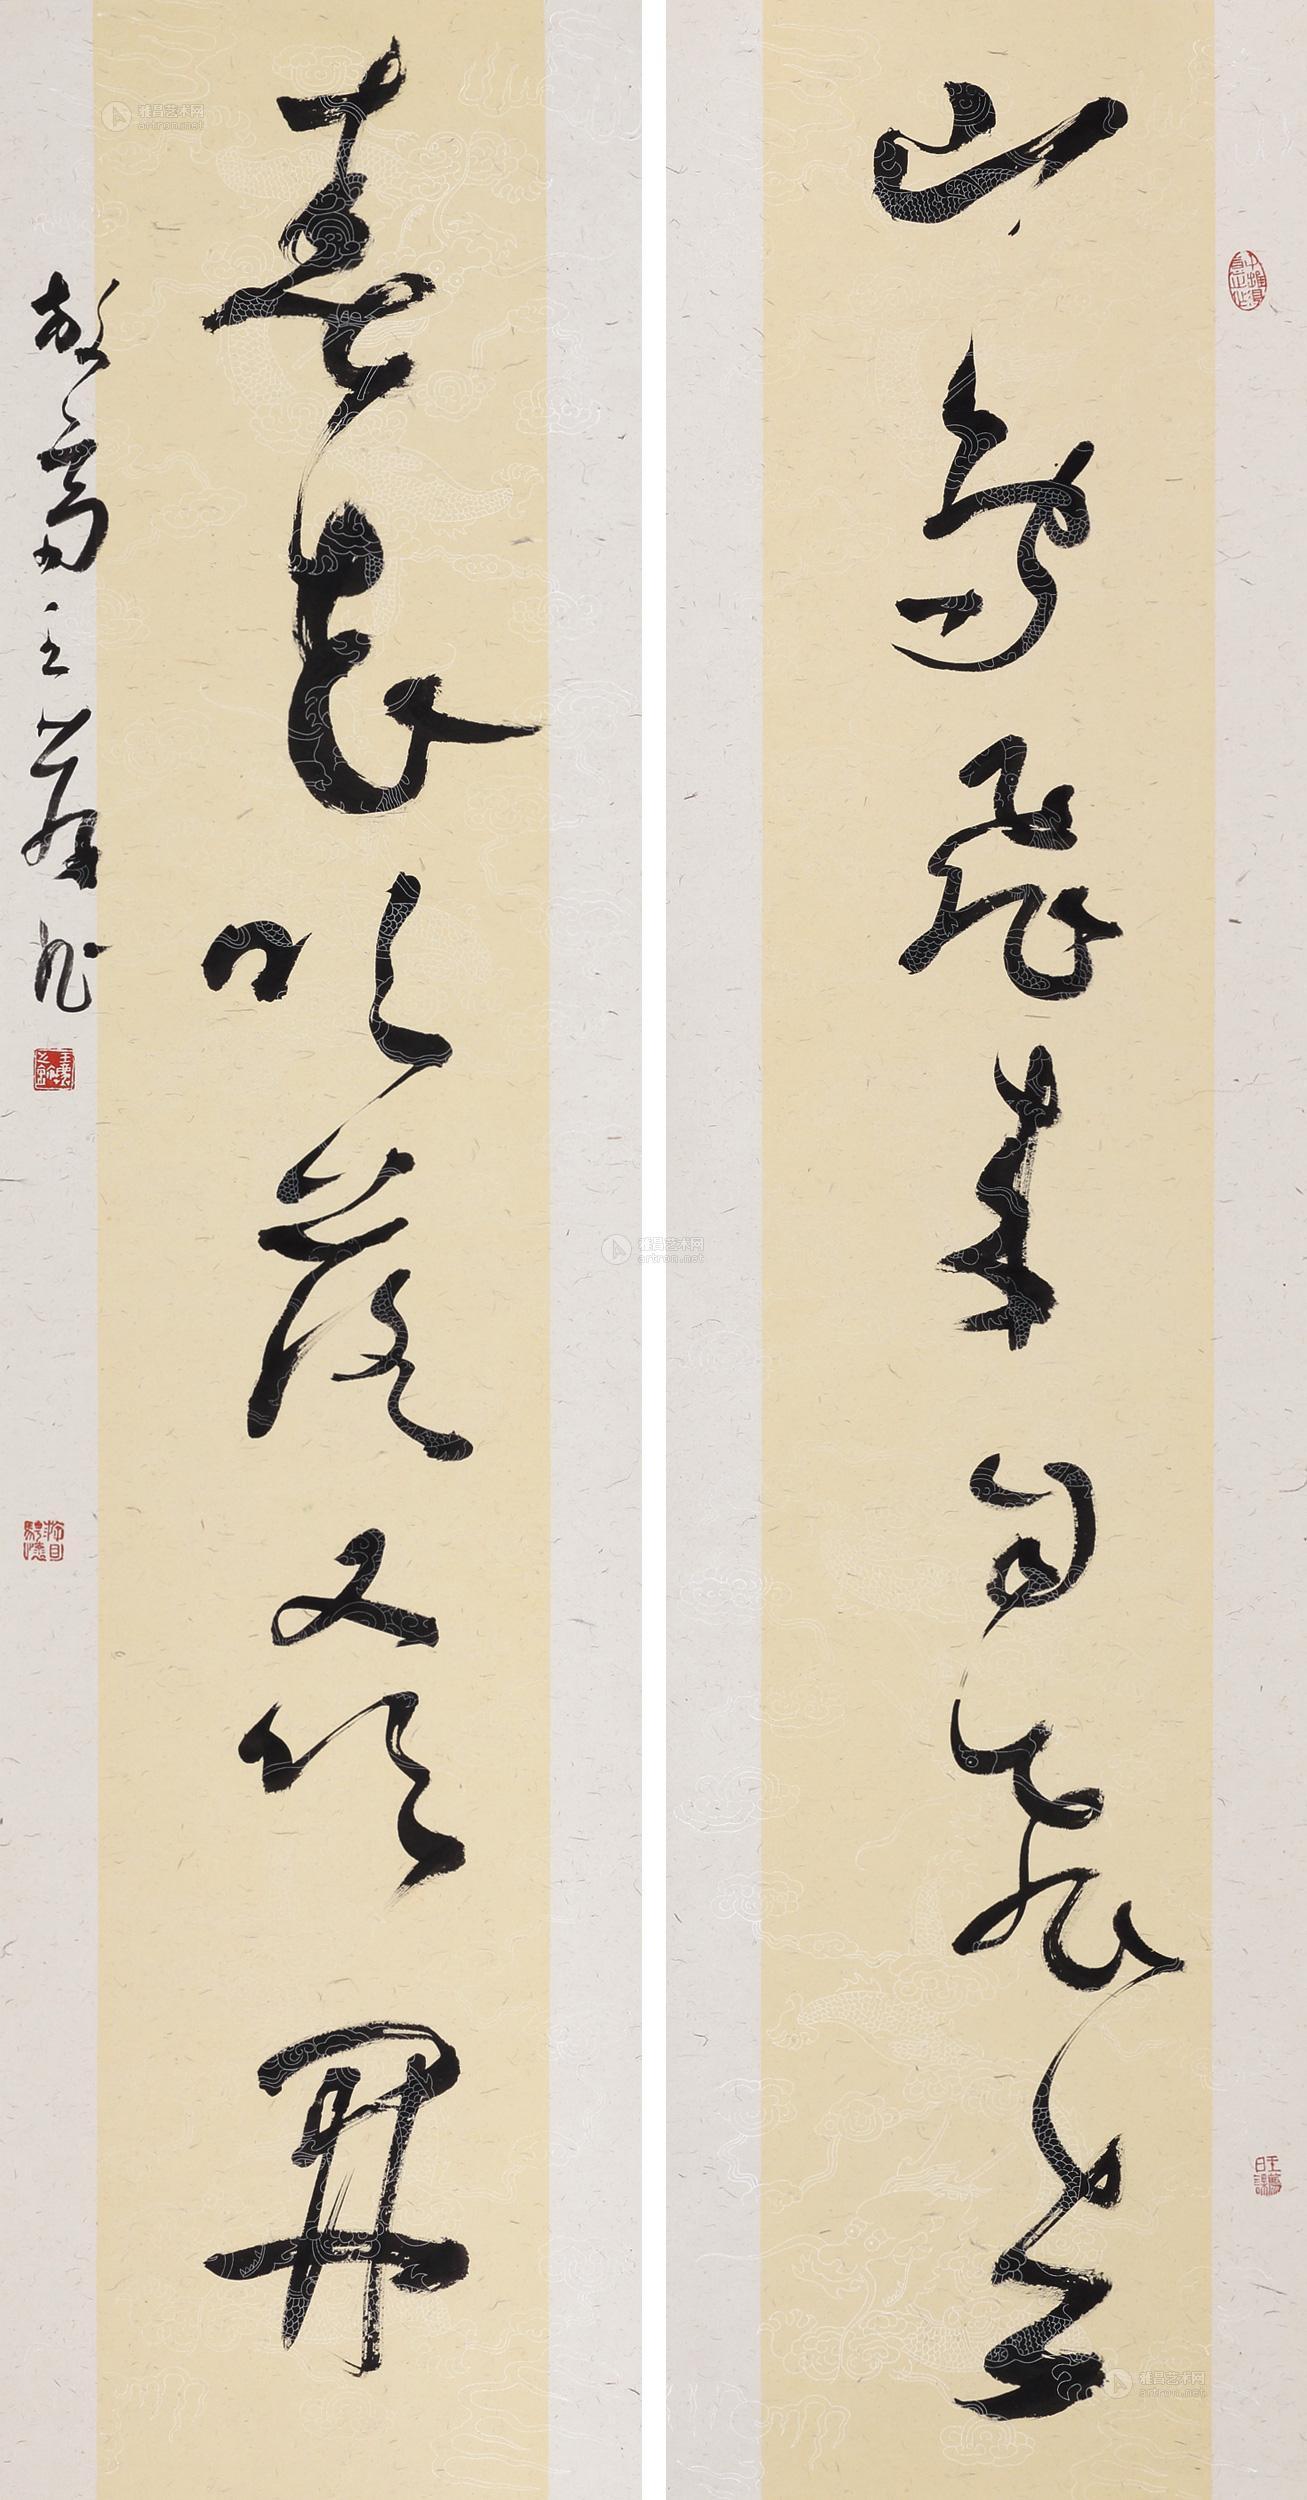 山鸟飞来自飞去
春花吹落又吹开
故斋主
雅昌艺术网
artron.net
雅昌艺术网
artron.net
雅昌艺术网
artron.net